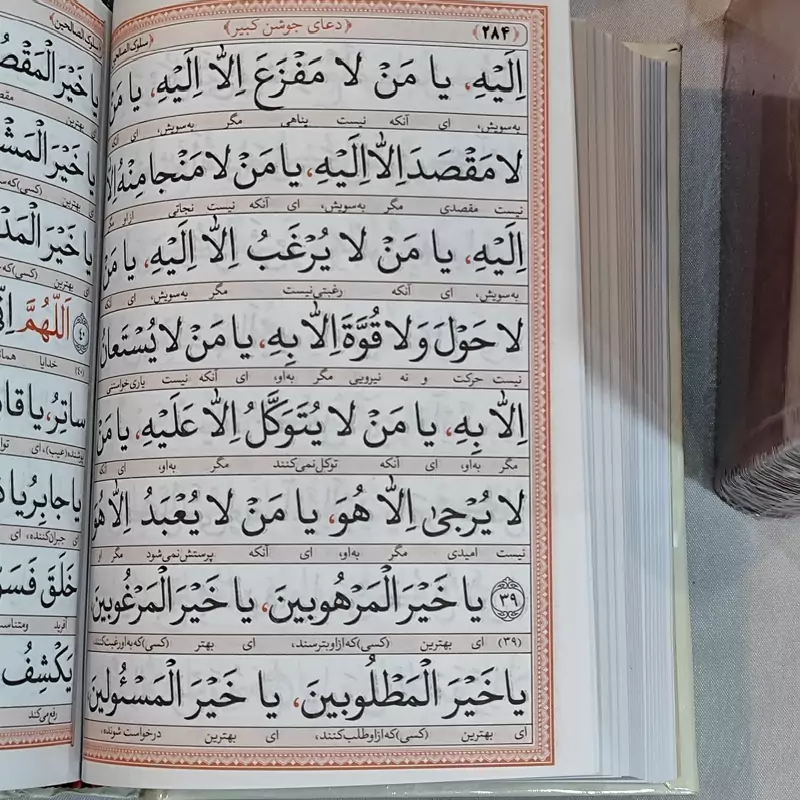 ﴿۲۸۴﴾ ﴿دعای جوشن کبیر﴾ ﴿سلوک الصالحین﴾
اِلَیْهِ، یا مَنْ لا مَفْزَعَ اِلاّٰ اِلَیْهِ، یا مَنْ
به‌سویش، ای آنکه نیست پناهی مگر به‌سویش، ای آنکه
لا مَقْصَدَ اِلاّٰ اِلَیْهِ، یا مَنْ لا مَنْجا مِنْهُ اِلاّٰ
نیست مقصدی مگر به‌سویش، ای آنکه نیست نجاتی از او مگر
اِلَیْهِ، یا مَنْ لا یُرْغَبُ اِلاّٰ اِلَیْهِ، یا مَنْ
به‌سویش، ای آنکه رغبتی‌نیست مگر به‌سویش، ای آنکه
لا حَوْلَ وَ لا قُوَّةَ اِلاّٰ بِهِ، یا مَنْ لا یُسْتَعانُ
نیست حرکت و نه نیرویی مگر به‌او، ای آنکه نیست یاری‌خواستنی
اِلاّٰ بِهِ، یا مَنْ لا یُتَوَکَّلُ اِلاّٰ عَلَیْهِ، یا مَنْ
مگر به‌او، ای آنکه توکل‌نمی‌کنند مگر به‌او، ای آنکه
لا یُرْجیٰ اِلاّٰ هُوَ، یا مَنْ لا یُعْبَدُ اِلاّٰ هُوَ
نیست امیدی مگر به‌او، ای آنکه پرستش‌نمی‌شود مگر او
﴿۳۹﴾ یا خَیْرَ الْمَرْهُوبینَ، یا خَیْرَ الْمَرْغُوبینَ
(۳۹) ای بهترین (کسی)که‌ازاوبترسند، ای بهتر (کسی)که‌به‌اورغبت‌کنند
یا خَیْرَ الْمَطْلُوبینَ، یا خَیْرَ الْمَسْئُولینَ
ای بهترین (کسی)که‌ازاوطلب‌کنند، ای بهترین درخواست شونده،
﴿سلوک الصالحین﴾
یا خَیْرَ
ای بهترین
یا خَیْرَ
ای بهترین (کسی)که
یا خَیْرَ
ای بهترین (کسی)که
﴿۴۰﴾ اَللّٰهُمَّ
(۴۰) خدایا
ساتِرُ، یا
ای
یا جابِرُ یا
ای جبران‌کننده، ای
خَلَقَ
آفرید
یَکْشِفُ
رفع‌می‌کند